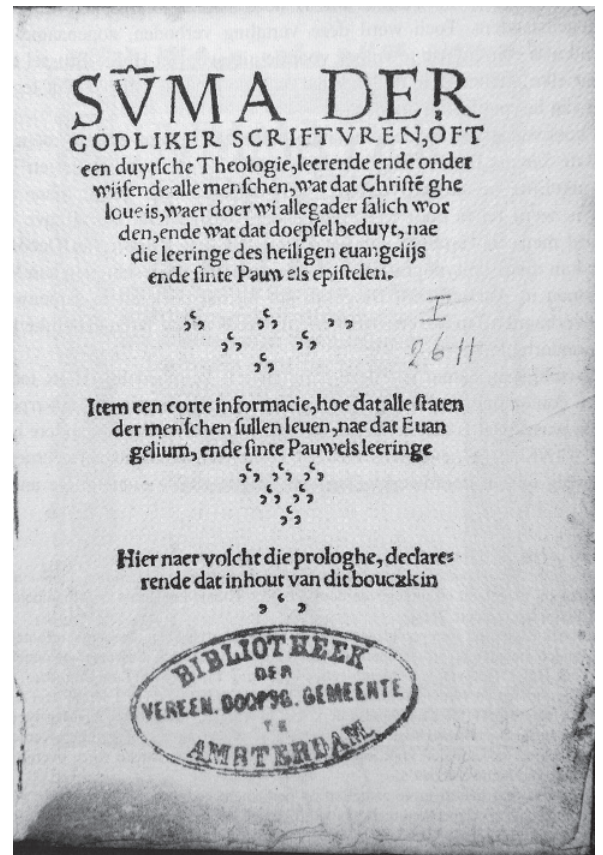 SV̄MA DER
GODLIKER SCRIFTVREN, OFT
een duytsche Theologie, leerende ende onder
wiisende alle menschen, wat dat Christē ghe
loue is, waer doer wi allegader salich wor
den, ende wat dat doepsel beduyt, nae
die leeringe des heiligen euangelijs
ende sinte Pauwels epistelen.
I
2611
Item een corte informacie, hoe dat alle staten
der menschen sullen leuen, nae dat Euan
gelium, ende sinte Pauwels leeringe
Hier naer volcht die prologhe, declare⸗
rende dat inhout van dit boucxkin
BIBLIOTHEEK
DER
VEREEN. DOOPSG. GEMEENTE
TE
AMSTERDAM